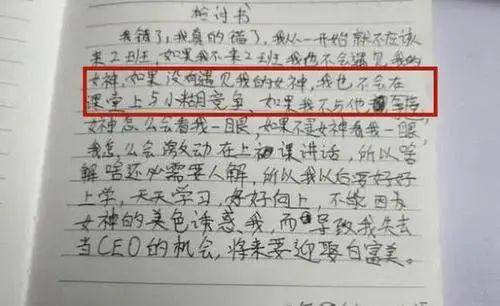 检讨书
我错了,我真的错了,我从一开始就不应该
来2班,如果我不来2班我也不会遇见我的
女神,如果没有遇见我的女神,我也不会在
课堂上与小胡竞争、如果我不与他竞争
女神怎么会看我一眼,如果不是女神看我一眼
我怎么会激动在上课讲话,所以
解铃还必需要人解,所以我以后要好好
上学,天天学习,好好向上,不能因为
女神的美色诱惑我,而导致我失去
当CEO的机会,将来要迎娶白富美。